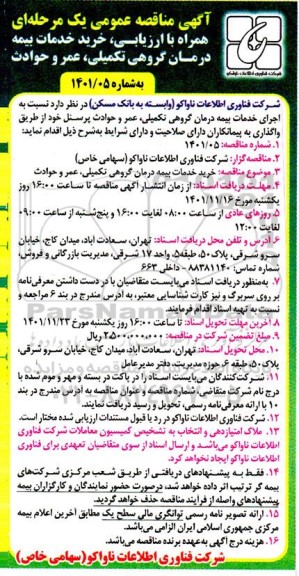 آگهی مناقصه عمومی یک مرحله‌ای
همراه با ارزیابی، خرید خدمات بیمه
درمان گروهی تکمیلی، عمر و حوادث
به‌شماره ۱۴۰۱/۰۵
شرکت فناوری اطلاعات ناواکو
شرکت فناوری اطلاعات ناواکو (وابسته به بانک مسکن) در نظر دارد نسبت به
اجرای خدمات بیمه درمان گروهی تکمیلی، عمر و حوادث پرسنل خود از طریق
واگذاری به پیمانکاران دارای صلاحیت و دارای شرایط به‌شرح ذیل اقدام نماید:
۱. شماره مناقصه: ۱۴۰۱/۰۵
۲. مناقصه‌گزار: شرکت فناوری اطلاعات ناواکو (سهامی خاص)
۳. موضوع مناقصه: خرید خدمات بیمه درمان گروهی تکمیلی، عمر و حوادث
۴. مهلت دریافت اسناد: از زمان انتشار آگهی مناقصه تا ساعت ۱۶:۰۰ روز
یکشنبه مورخ ۱۴۰۱/۱۱/۱۶
۵. روزهای عادی از ساعت ۰۸:۰۰ لغایت ۱۶:۰۰ و پنج‌شنبه از ساعت ۰۹:۰۰
لغایت ۱۲:۰۰
۶. آدرس و تلفن محل دریافت اسناد: تهران، سعادت آباد، میدان کاج، خیابان
سرو شرقی، پلاک ۵۰، طبقه ۵، واحد ۱۷ شرقی، مدیریت بازرگانی و فروش،
شماره تماس: ۸۸۳۸۱۱۴۰ - داخلی ۶۶۳
۷. به‌منظور دریافت اسناد می‌بایست متقاضیان با در دست داشتن معرفی‌نامه
بر روی سربرگ و نیز کارت شناسایی معتبر، به آدرس مندرج در بند ۶ مراجعه و
نسبت به تهیه اسناد اقدام فرمایند.
۸. آخرین مهلت تحویل اسناد: تا ساعت ۱۶:۰۰ روز یکشنبه مورخ ۱۴۰۱/۱۱/۲۳
۹. مبلغ تضمین شرکت در مناقصه: ۲.۵۰۰.۰۰۰.۰۰۰ ریال
۱۰. محل تحویل اسناد: تهران، سعادت آباد، میدان کاج، خیابان سرو شرقی،
پلاک ۵۰، طبقه ۶، حوزه مدیریت، دفتر مدیرعامل
۱۱. شرکت‌کنندگان می‌بایست اسناد را در پاکت در بسته و مهر و موم شده با
درج نام شرکت متقاضی، شماره مناقصه و عنوان مناقصه به آدرس مندرج در بند
۱۰ با ارائه معرفی‌نامه رسمی، تحویل و رسید دریافت نمایند.
۱۲. شرکت فناوری اطلاعات ناواکو در رد یا قبول مستندات ارزیابی شده مختار است.
۱۳. ملاک امتیازدهی و انتخاب به تشخیص کمیسیون معاملات شرکت فناوری
اطلاعات ناواکو می‌باشد و ارسال اسناد از سوی متقاضیان تعهدی برای فناوری
اطلاعات ناواکو ایجاد نخواهد کرد.
۱۴. فقط به پیشنهادهای دریافتی از طریق شعب مرکزی شرکت‌های
بیمه گر ترتیب اثر داده خواهد شد، درصورت حضور نمایندگان و کارگزاران بیمه
پیشنهادهای واصله از فرایند مناقصه حذف خواهد گردید.
۱۵. ارائه تصویر نامه رسمی توانگری مالی سطح یک مطابق آخرین اعلام بیمه
مرکزی جمهوری اسلامی ایران الزامی می‌باشد.
۱۶. هزینه درج آگهی به‌عهده برنده مناقصه می‌باشد.
شرکت فناوری اطلاعات ناواکو (سهامی خاص)